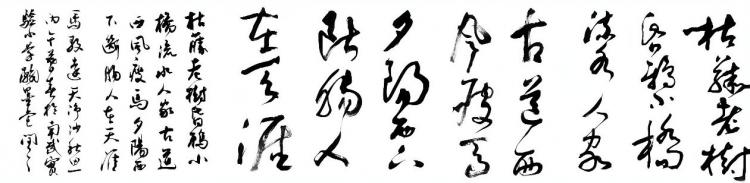 枯藤老樹
昏鴉小橋
流水人家
古道西
風瘦馬
夕陽西下
斷腸人
在天涯
枯藤老樹昏鴉小
橋流水人家古道
西風瘦馬夕陽西
下斷腸人在天涯
馬致遠天淨沙秋思一
丙午於南武實
驗小學墨